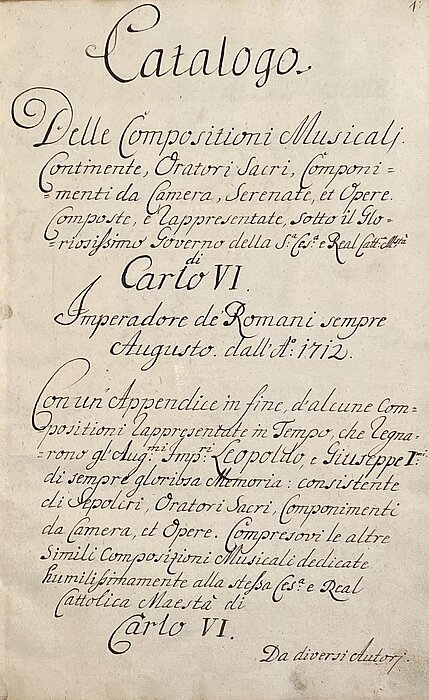 1.
Catalogo.
Delle Compositioni Musicalj.
Continente, Oratori Sacri, Componi=
=menti da Camera, Serenate, et Opere.
Composte, e rappresentate, sotto il Glo-
=riosissimo Governo della S.ª Ces.ª e Real Catt.ª M.stà
di
Carlo VI.
Imperadore de' Romani sempre
Augusto. dall'Aº: 1712.
Con un' Appendice in fine, d'alcune Com=
=positioni rappresentate in Tempo, che regna=
rono gl'Aug.mi Imp.ri Leopoldo, e Giuseppe I.mi
di sempre gloriosa Memoria: consistente
di Sepolcri, Oratori Sacri, Componimenti
da Camera, et Opere. Compresovi le altre
Simili Composizioni Musicali dedicate
humilissimamente alla stessa Ces.ª e Real
Cattolica Maestà di
Carlo VI.
Da diversi Autorj.